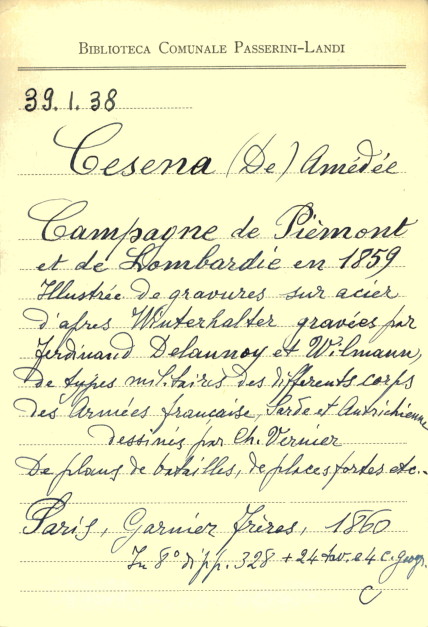 BIBLIOTECA COMUNALE PASSERINI-LANDI
39.1.38
Cesena (De) Amédée
Campagne de Pièmont
et de Lombardie en 1859
Illustrée de gravures sur acier
d'apres Winterhalter gravées par
Ferdinand Delaunoy et Wilmann,
de types militaires des differents corps
des Armées française, Sarde et Autrichienne
dessinés par Ch. Vernier
De plans de batailles, de places fortes etc.-
Paris, Garnier frères, 1860
In 8° di pp. 328 + 24 tav. e 4 c. geogr.
C